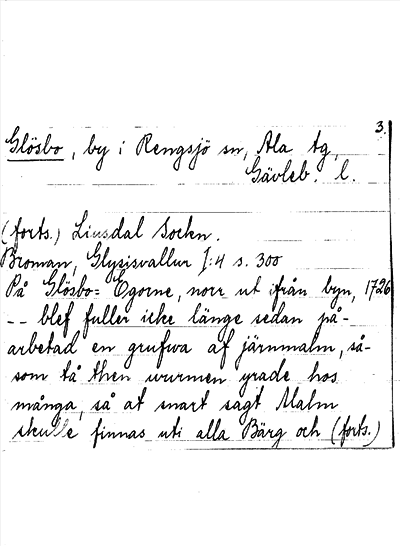 3.
Glösbo, by i Rengsjö sn, Ala tg,
Gävleb. l.
(forts.) Liusdal Sochn.
Broman, Glysisvallur I:4 s. 300
På Glösbo=Egorne, norr ut ifrån byn, 1726
-- blef fuller icke länge sedan på-
arbetad en grufwa af järnmalm, så-
som tå then wurmen yrade hos
många, så at snart sagt Malm
skulle finnas uti alla Bärg och (forts.)